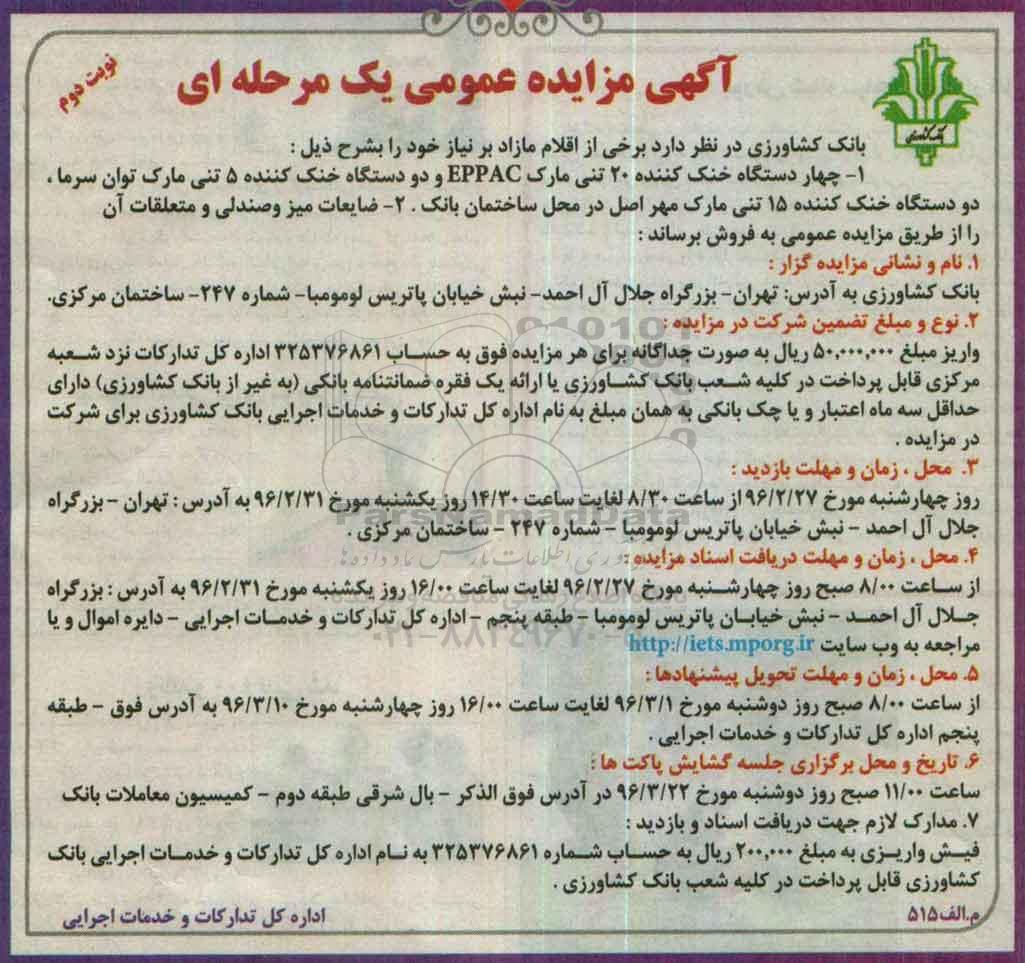 آگهی مزایده عمومی یک مرحله ای
نوبت دوم
بانک کشاورزی
بانک کشاورزی در نظر دارد برخی از اقلام مازاد بر نیاز خود را بشرح ذیل :
۱- چهار دستگاه خنک کننده ۲۰ تنی مارک EPPAC و دو دستگاه خنک کننده ۵ تنی مارک توان سرما ،
دو دستگاه خنک کننده ۱۵ تنی مارک مهر اصل در محل ساختمان بانک . ۲- ضایعات میز وصندلی و متعلقات آن
را از طریق مزایده عمومی به فروش برساند :
۱. نام و نشانی مزایده گزار :
بانک کشاورزی به آدرس: تهران- بزرگراه جلال آل احمد- نبش خیابان پاتریس لومومبا- شماره ۲۴۷- ساختمان مرکزی.
۲. نوع و مبلغ تضمین شرکت در مزایده :
واریز مبلغ ۵۰,۰۰۰,۰۰۰ ریال به صورت جداگانه برای هر مزایده فوق به حساب ۳۲۵۳۷۶۸۶۱ اداره کل تدارکات نزد شعبه
مرکزی قابل پرداخت در کلیه شعب بانک کشاورزی یا ارائه یک فقره ضمانتنامه بانکی (به غیر از بانک کشاورزی) دارای
حداقل سه ماه اعتبار و یا چک بانکی به همان مبلغ به نام اداره کل تدارکات و خدمات اجرایی بانک کشاورزی برای شرکت
در مزایده .
۳. محل ، زمان و مهلت بازدید :
روز چهارشنبه مورخ ۹۶/۲/۲۷ از ساعت ۸/۳۰ لغایت ساعت ۱۴/۳۰ روز یکشنبه مورخ ۹۶/۲/۳۱ به آدرس : تهران - بزرگراه
جلال آل احمد - نبش خیابان پاتریس لومومبا - شماره ۲۴۷ - ساختمان مرکزی .
۴. محل ، زمان و مهلت دریافت اسناد مزایده :
از ساعت ۸/۰۰ صبح روز چهارشنبه مورخ ۹۶/۲/۲۷ لغایت ساعت ۱۶/۰۰ روز یکشنبه مورخ ۹۶/۲/۳۱ به آدرس : بزرگراه
جلال آل احمد - نبش خیابان پاتریس لومومبا - طبقه پنجم - اداره کل تدارکات و خدمات اجرایی - دایره اموال و یا
مراجعه به وب سایت http://iets.mporg.ir
۵. محل ، زمان و مهلت تحویل پیشنهادها :
از ساعت ۸/۰۰ صبح روز دوشنبه مورخ ۹۶/۳/۱ لغایت ساعت ۱۶/۰۰ روز چهارشنبه مورخ ۹۶/۳/۱۰ به آدرس فوق - طبقه
پنجم اداره کل تدارکات و خدمات اجرایی .
۶. تاریخ و محل برگزاری جلسه گشایش پاکت ها :
ساعت ۱۱/۰۰ صبح روز دوشنبه مورخ ۹۶/۳/۲۲ در آدرس فوق الذکر - بال شرقی طبقه دوم - کمیسیون معاملات بانک
۷. مدارک لازم جهت دریافت اسناد و بازدید :
فیش واریزی به مبلغ ۲۰۰,۰۰۰ ریال به حساب شماره ۳۲۵۳۷۶۸۶۱ به نام اداره کل تدارکات و خدمات اجرایی بانک
کشاورزی قابل پرداخت در کلیه شعب بانک کشاورزی .
م.الف۵۱۵
اداره کل تدارکات و خدمات اجرایی